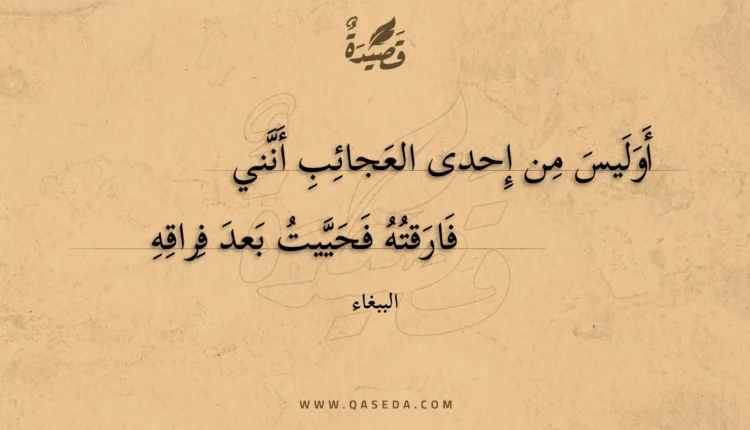 قَصِيْدَةٌ
أَوَلَيسَ مِن إِحدى العَجائِبِ أَنَّني
فَارَقتُهُ فَحَيَّيتُ بَعدَ فِراقِهِ
الببغاء
WWW.QASEDA.COM